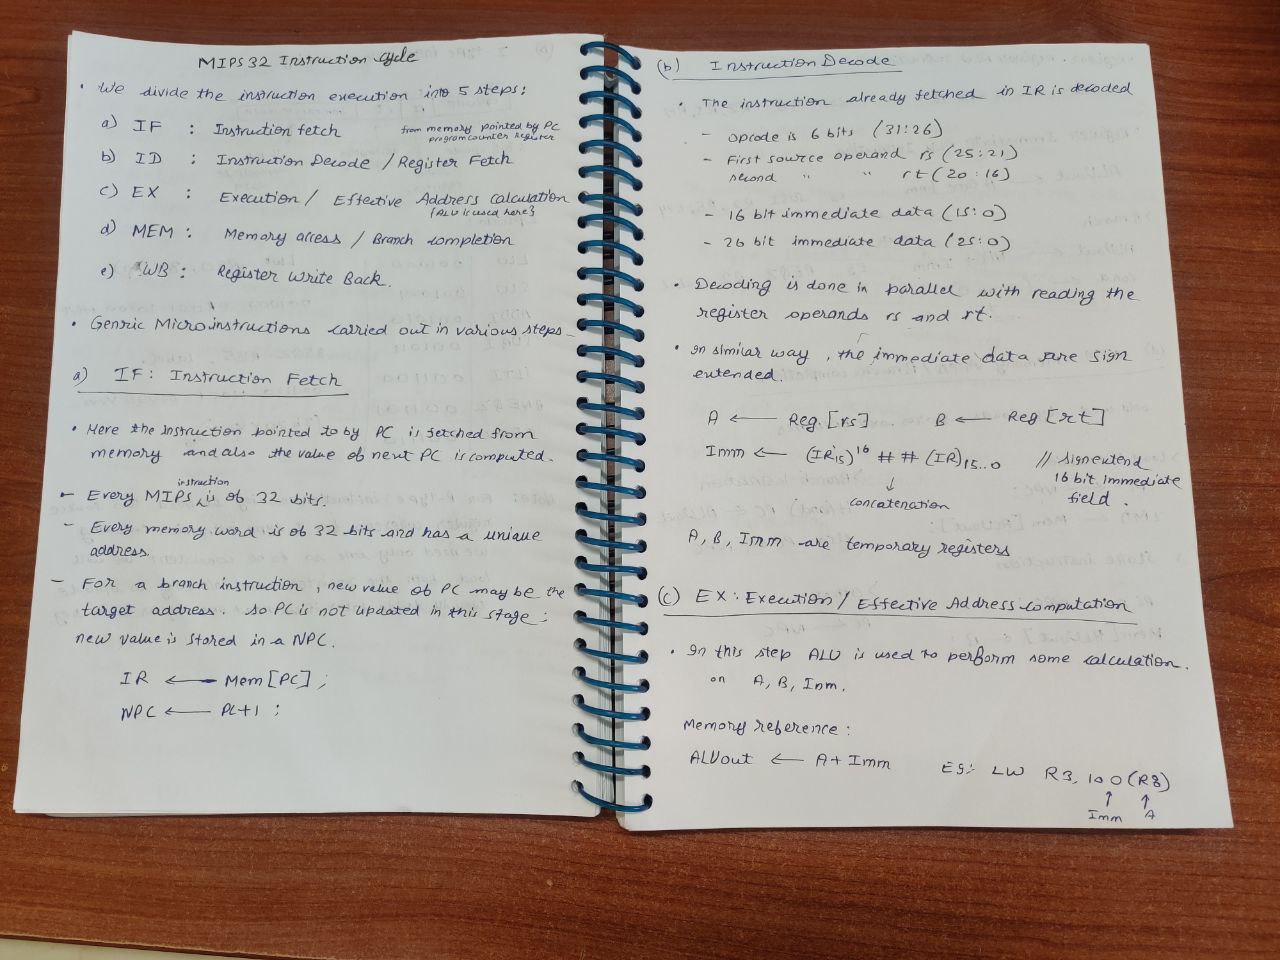 MIPS32 Instruction cycle
• We divide the instruction execution into 5 steps:
a) IF : Instruction fetch
from memory pointed by PC
program counter register
b) ID : Instruction Decode / Register Fetch
c) EX : Execution / Effective Address calculation
{ALU is used here}
d) MEM : Memory access / Branch completion
e) WB : Register Write Back.
• Genric Microinstructions carried out in various steps
a) IF : Instruction Fetch
• Here the instruction pointed to by PC is fetched from
memory and also the value of next PC is computed.
instruction
- Every MIPS is of 32 bits.
- Every memory word is of 32 bits and has a unique
address.
- For a branch instruction, new value of PC may be the
target address. so PC is not updated in this stage;
new value is stored in a NPC.
IR ← Mem [PC] ;
NPC ← PC+1 ;
(b) Instruction Decode
• The instruction already fetched in IR is decoded
- opcode is 6 bits (31:26)
- First source operand rs (25:21)
second " " rt (20:16)
- 16 bit immediate data (15:0)
- 26 bit immediate data (25:0)
• Decoding is done in parallel with reading the
register operands rs and rt.
• In similar way, the immediate data are sign
extended.
A ← Reg [rs] B ← Reg [rt]
Imm ← (IR15)16 ## (IR)15..0 // sign extend
16 bit immediate
field.
↓
concatenation
A, B, Imm are temporary registers
(c) EX : Execution / Effective Address Computation
• In this step ALU is used to perform some calculation.
on A, B, Imm.
Memory reference :
ALUout ← A + Imm Eg:- LW R3, 100(R8)
↑ ↑
Imm A